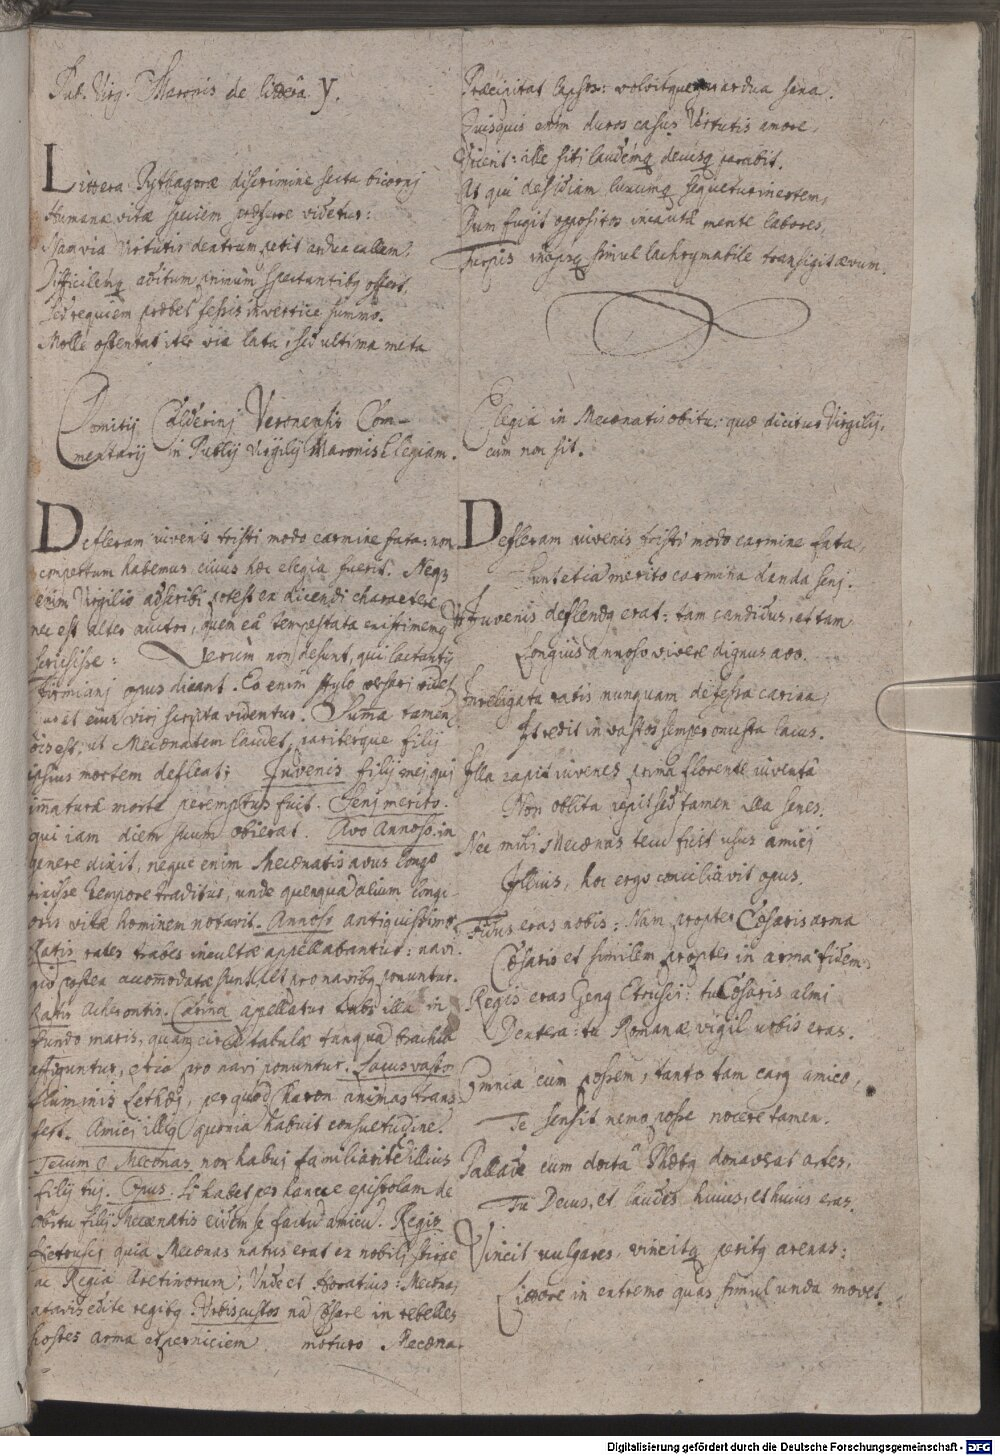 Pub. Virg. Maronis de littera Y.
Littera Pythagoræ discrimine secta bicornj
Humanæ vitæ speciem præferre videtur:
Nam via Virtutis dextrum petit ardua callem,
Difficilemq aditum primùm spectantibq offert.
Sed requiem præbet fessis in vertice summo.
Molle ostentat iter via lata, sed ultima meta
Præcipitat captos: volvitque per ardua saxa.
Quisquis enim duros casus Virtutis amore,
Vicerit: ille siti laudemq decusq parabit.
At qui desidiam luxumq sequetur inertem,
Dum fugit oppositos incautâ mente labores,
Turpis inopsq simul lachrymabile transigit ævum.
Domitij Calderinj Veronensis Com-
mentarij in Publij Virgilij Maronis Elegiam.
Defleram iuvenis tristi modo carmine fata: non
compertum habemus cuius hæc elegia fuerit. Neq
enim Virgilio adscribi potest ex dicendi charactere
nec est alter auctor, quem eâ tempestate existimemq
scripsisse: Verùm non desunt, qui Lactantij
Firmianj opus dicant. Eo enim stylo versarj videt
ut et eius virj scripta videntur. Suma tamen
ois est: ut Mecænatem laudet, pariterque filij
ipsius mortem defleat; Iuvenis filij mej qui
immatura morte peremptus fuit. Senj merito.
qui iam diem suum obierat. Avo Annoso. in
genere dixit, neque enim Mecænatis avus longo
vixisse tempore traditur, unde quenquã alium longi-
oris vitæ hominem notavit. Annoso antiquissimo
Ratis rates trabes incultæ appellabantur: navi-
gio postea accomodatæ sunt, et pro navibq ponuntur.
Ratis Acherontis. Carina apellatur illa in
fundo maris, quam circa tabulæ tanquã brachia
affiguntur, etiã pro navi ponuntur. Lacus vastos
fluminis Lethæj, per quod Charon animas trans-
fert. Amicj illiq quonia habuit consuetudine.
Tecum ô Mecænas non habuj familiaritẽ illius
filij tuj. Opus. Si habet per hanc epistolam de
obitu filij Mecænatis eidem se factu amicu. Regis
Etruscj quia Mecænas natus erat ex nobilj stirpe
ac Regia Aretinorum, Unde et Horatius: Mecænas
atavis edite regibq. Urbis custos na Cæsare in rebelles
hostes arma et perniciem moturo Mecæna-
Elegia in Mecænatis obitu: quæ dicitur Virgilij,
cum non sit.
Defleram iuvenis tristi modo carmine fata,
Sunt etiã merito carmina danda senj.
Ut Iuvenis deflendq erat: tam candidus, et tam
Longius annoso vivere dignus avo.
Irreligata ratis nunquam defessa carina,
It redit in vastos semper onusta lacus.
Illa rapit iuvenes prima florente iuventâ
Non oblita repit sed tamen illa senes.
Nec mihi Mecænas tecũ fuit usus amicj
Illius, hoc ergo conciliavit opus.
Fidus eras nobis: Nam propter Cæsaris arma
Cæsaris et similem propter in arma fidem.
Regis eras Genq Etruscj: tu Cæsaris almi
Dextera: tu Romanæ vigil urbis eras.
Omnia cùm posses, tanto tam carq amico,
Te sensit nemo posse nocere tamen.
Pallade cum doctâ Phæbq donaverat artes,
Tu Decus, et laudes huius, et huius eras.
Vincit vulgares, vincitq peritq arenas:
Littore in extremo quas simul unda movet.
Digitalisierung gefördert durch die Deutsche Forschungsgemeinschaft - DFG